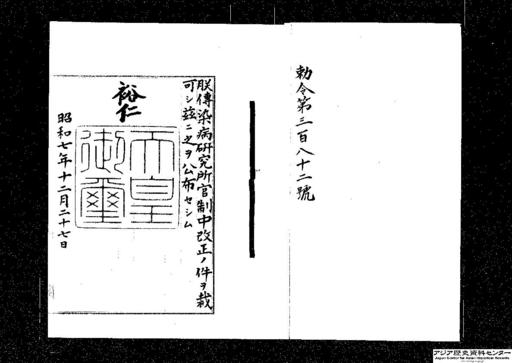 勅令第三百八十二號
朕傳染病研究所官制中改正ノ件ヲ裁
可シ茲ニ之ヲ公布セシム
裕仁
天皇
御璽
昭和七年十二月二十七日
アジア歴史資料センター
Japan Center for Asian Historical Records